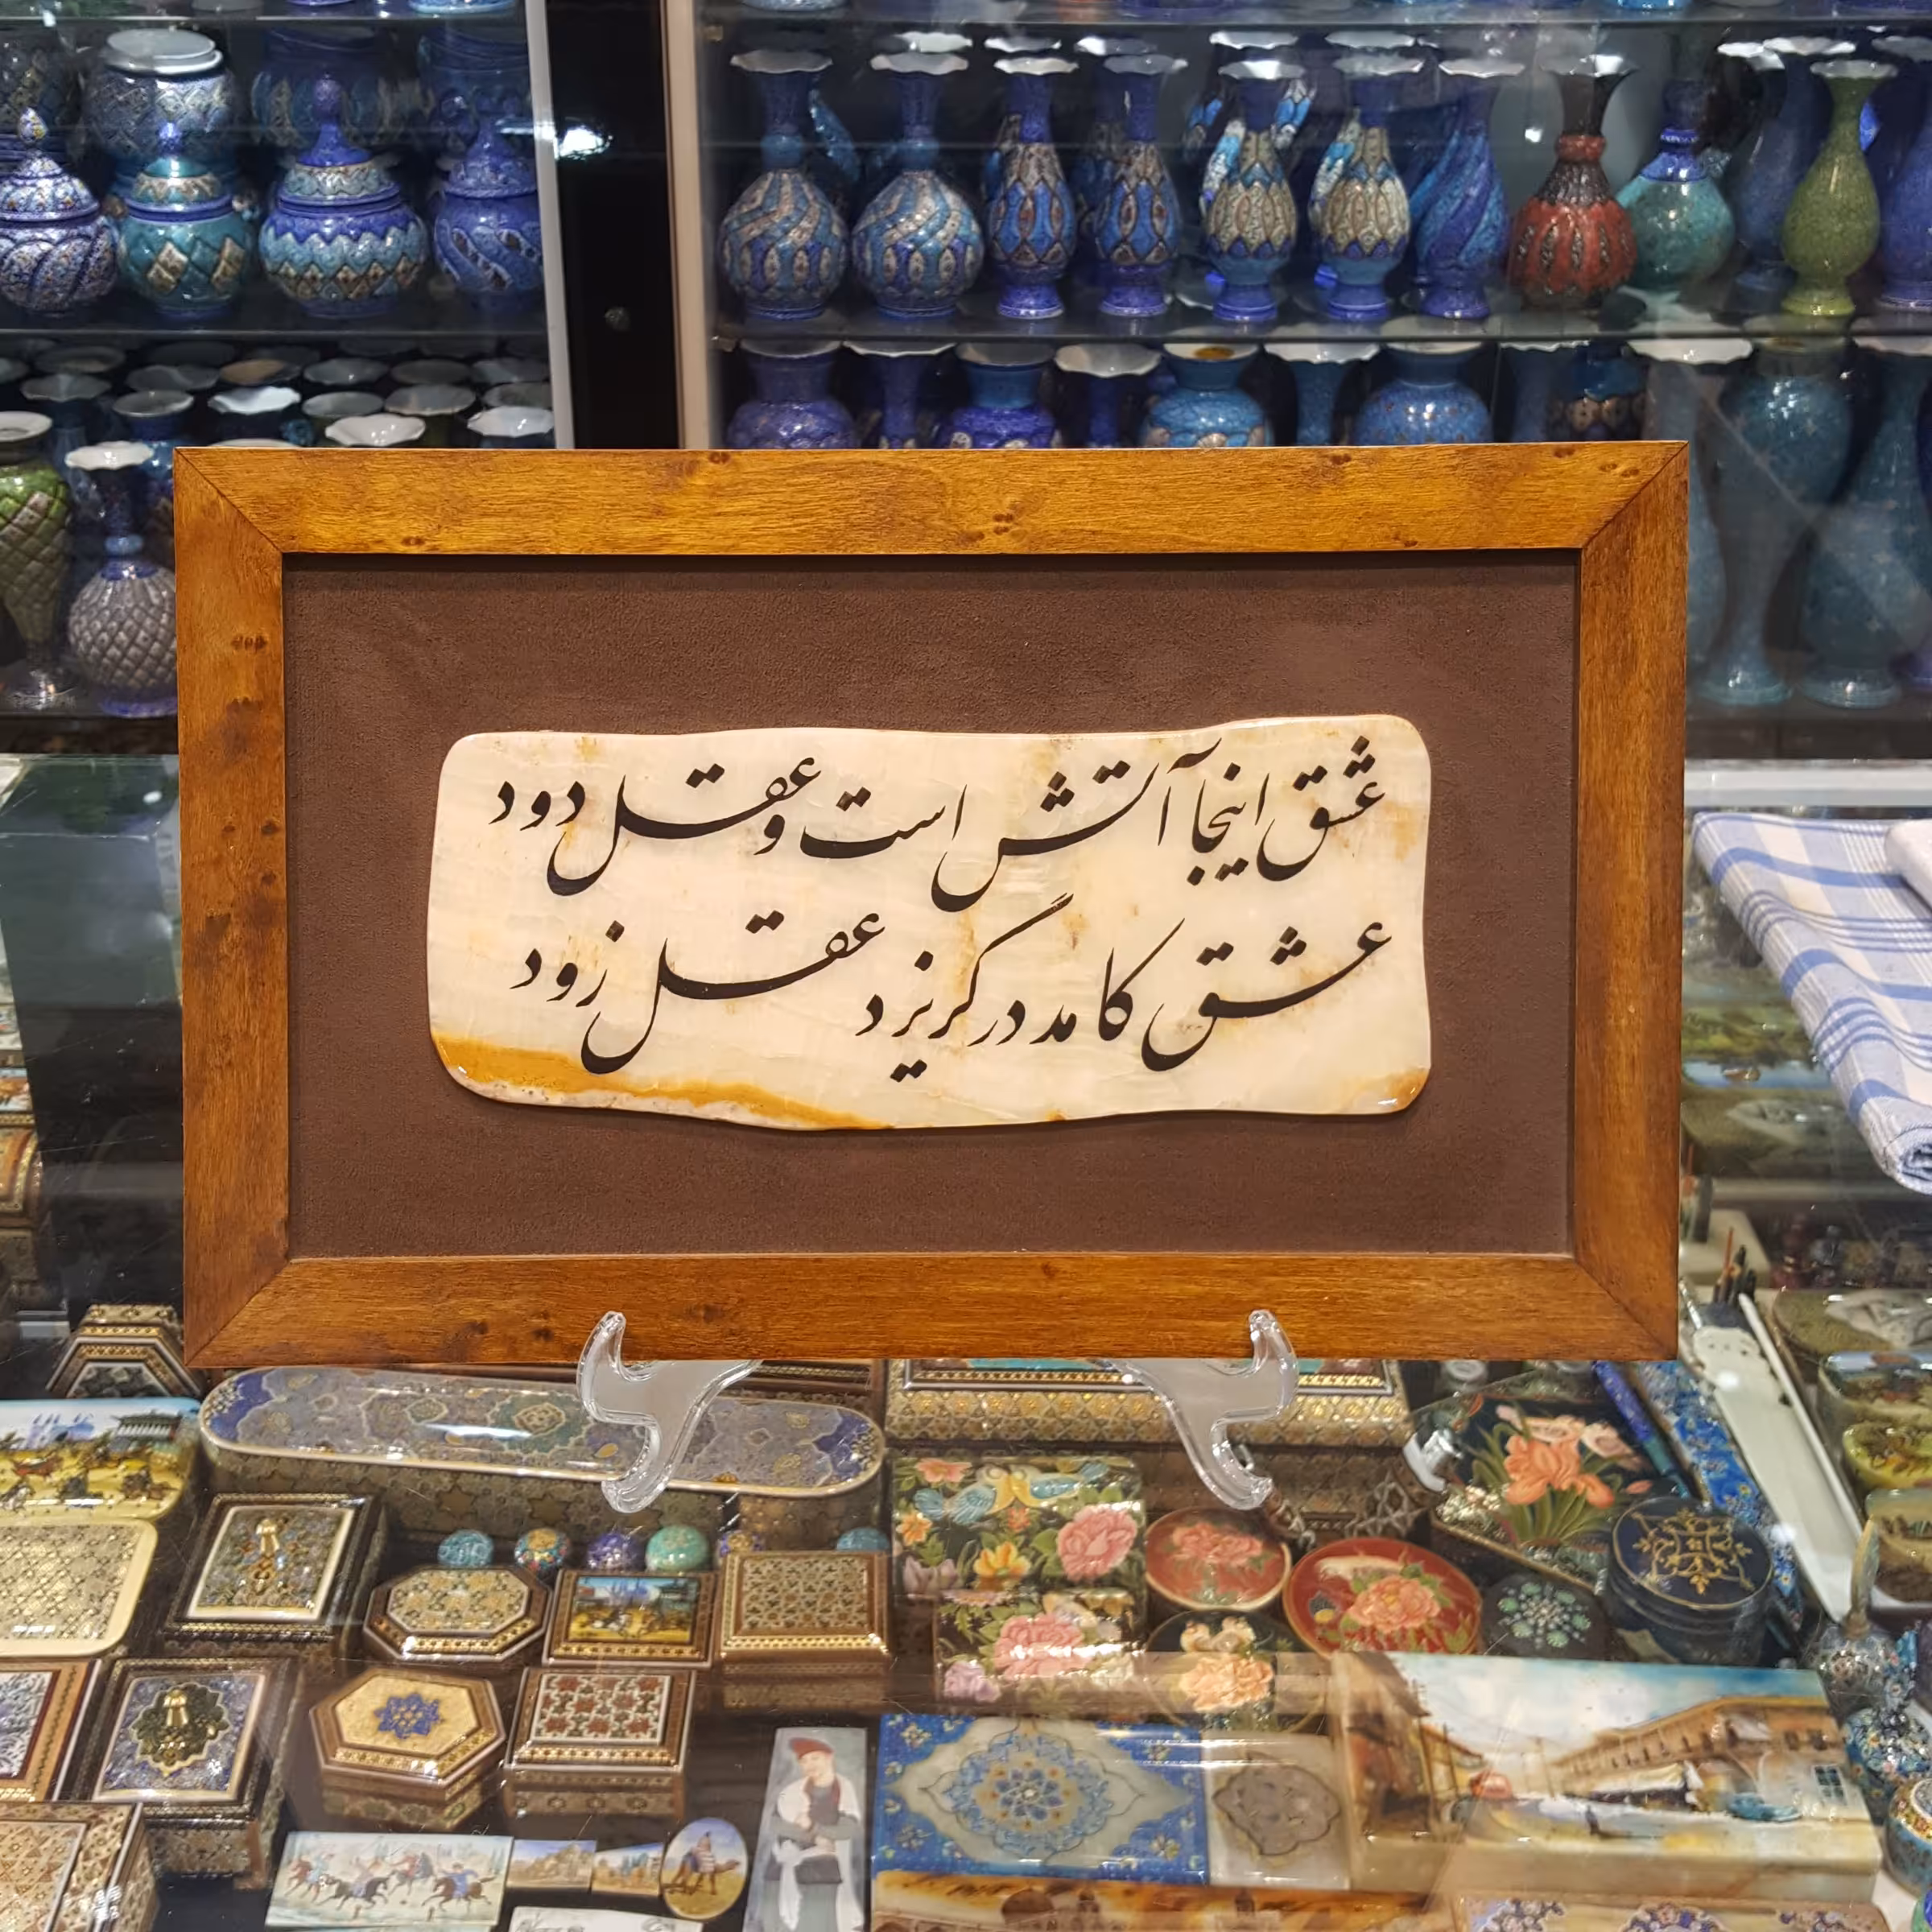 عشق اینجا آتش است و عقل دود
عشق کامد در گریزد عقل زود